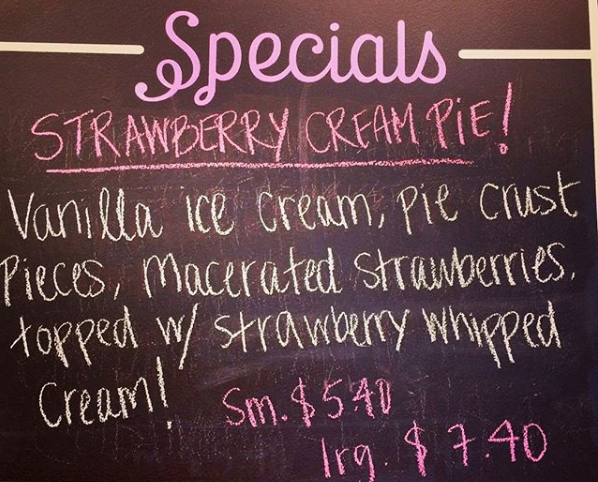 Specials
STRAWBERRY CREAM PiE!
Vanilla ice cream, pie crust
Pieces, Macerated strawberries,
topped w/ strawberry whipped
Cream!
Sm. $5.40
lrg. $7.40